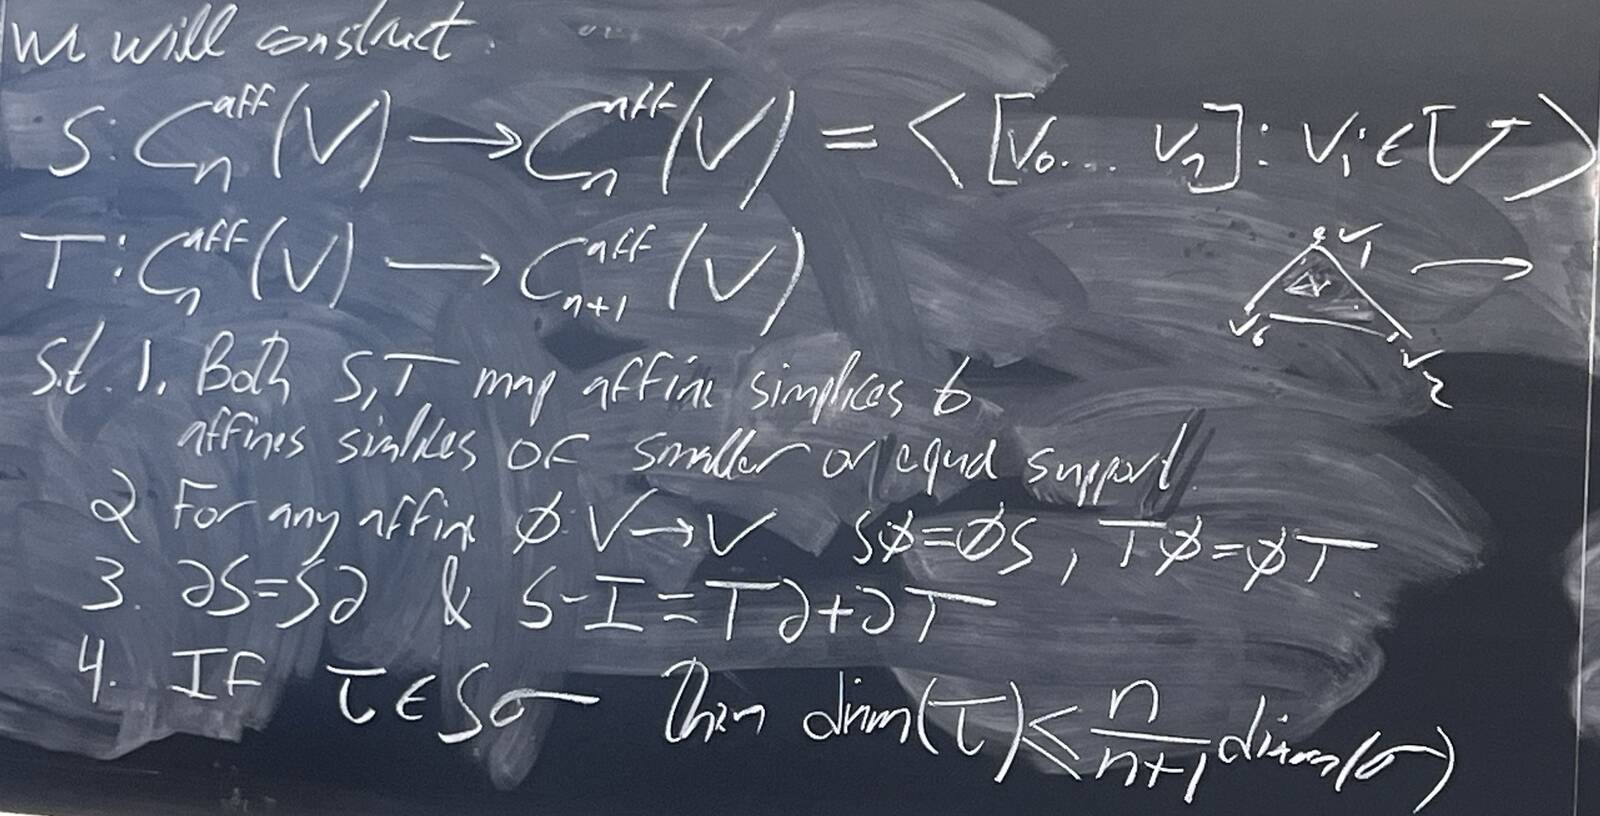 we will construct.
S: C_n^aff(V) → C_n^aff(V) = < [v_0... v_n]: v_i ∈ V >
T: C_n^aff(V) → C_{n+1}^aff(V)
v_1
v_0
v_2
s.t. 1. Both S,T map affine simplices to
affines simlices of smaller or equal support.
2 For any affine ϕ: V→V Sϕ=ϕS, Tϕ=ϕT
3. ∂S=S∂ & S-I=T∂+∂T
4. If τ∈Sσ Then diam(τ) ≤ n/(n+1) diam(σ)